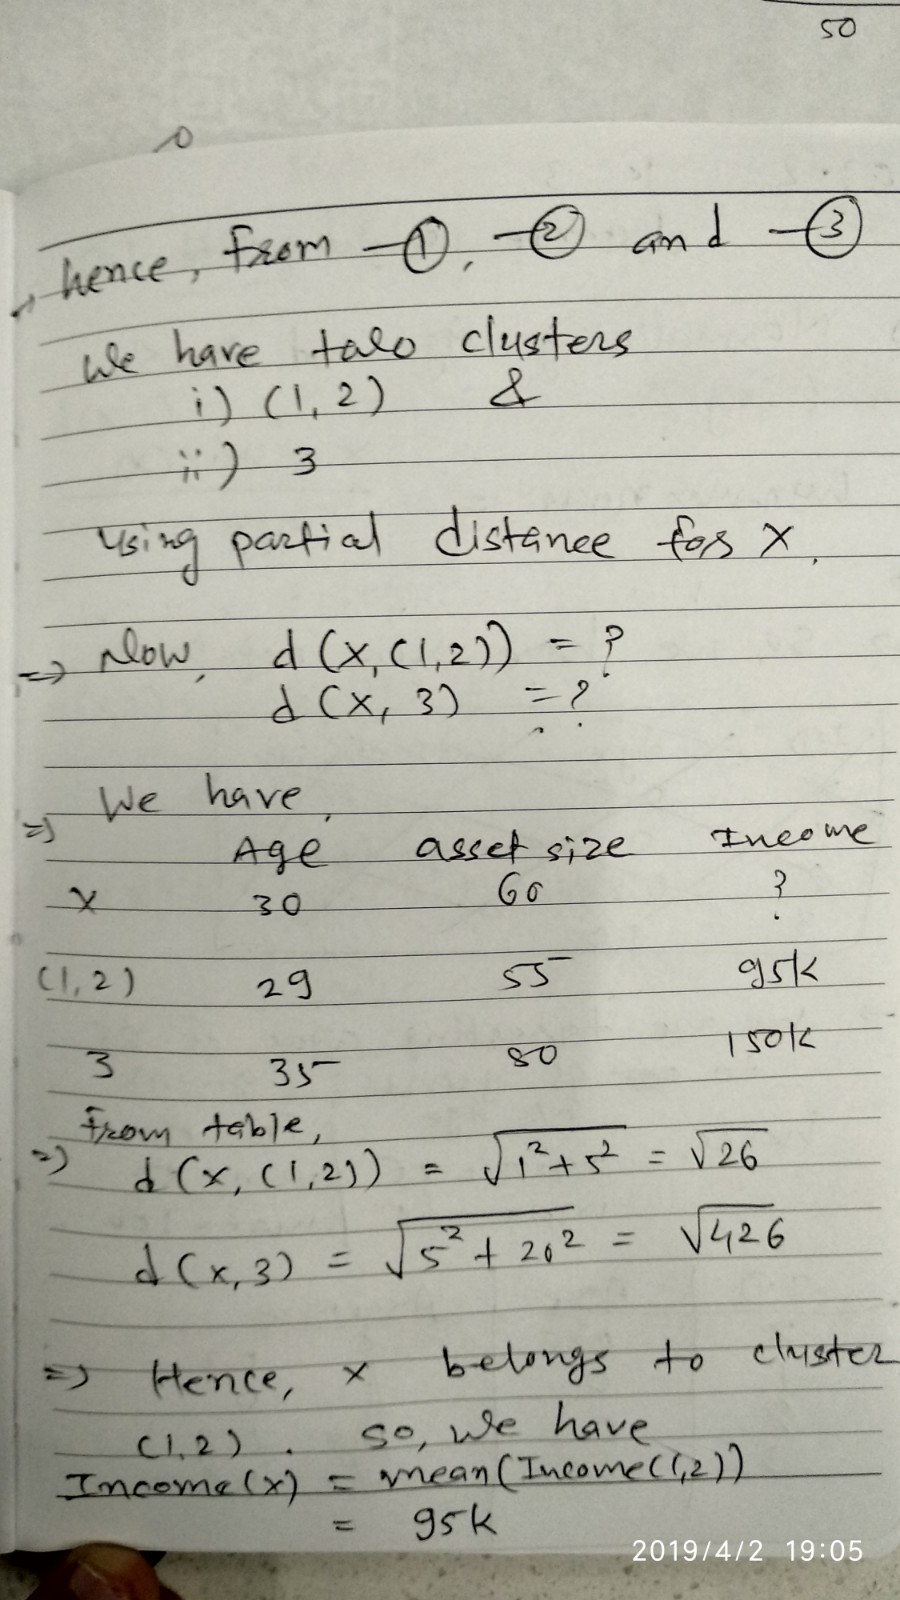 50
hence, from -①, -② and -③
We have two clusters
i) (1, 2) &
ii) 3
Using partial distance for X.
=> Now, d(x, (1,2)) = ?
d(x, 3) = ?
=> We have,
Age asset size Income
X 30 60 ?
(1,2) 29 55 95k
3 35 80 150k
From table,
=> d(x, (1,2)) = √1²+5² = √26
d(x,3) = √5²+20² = √426
=> Hence, x belongs to cluster
(1,2). So, we have
Income(x) = mean(Income(1,2))
= 95k
2019/4/2 19:05